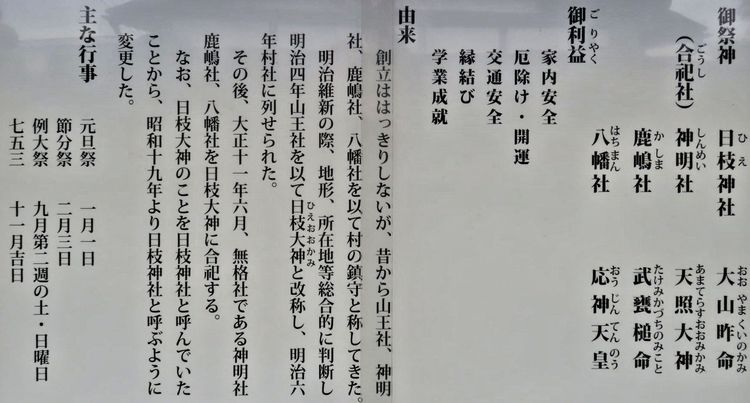 御祭神 日枝神社 大山昨命
ひえ おおやまくいのかみ
(合祀社) 神明社 天照大神
ごうし しんめい あまてらすおおみかみ
鹿嶋社 武甕槌命
かしま たけみかづちのみこと
八幡社 応神天皇
はちまん おうじんてんのう
御利益
ごりやく
家内安全
厄除け・開運
交通安全
縁結び
学業成就
由来
創立ははっきりしないが、昔から山王社、神明
社、鹿嶋社、八幡社を以て村の鎮守と称してきた。
明治維新の際、地形、所在地等総合的に判断し
明治四年山王社を以て日枝大神と改称し、明治六
ひえおおかみ
年村社に列せられた。
その後、大正十一年六月、無格社である神明社
鹿嶋社、八幡社を日枝大神に合祀する。
なお、日枝大神のことを日枝神社と呼んでいた
ことから、昭和十九年より日枝神社と呼ぶように
変更した。
主な行事
元旦祭 一月一日
節分祭 二月三日
例大祭 九月第二週の土・日曜日
七五三 十一月吉日